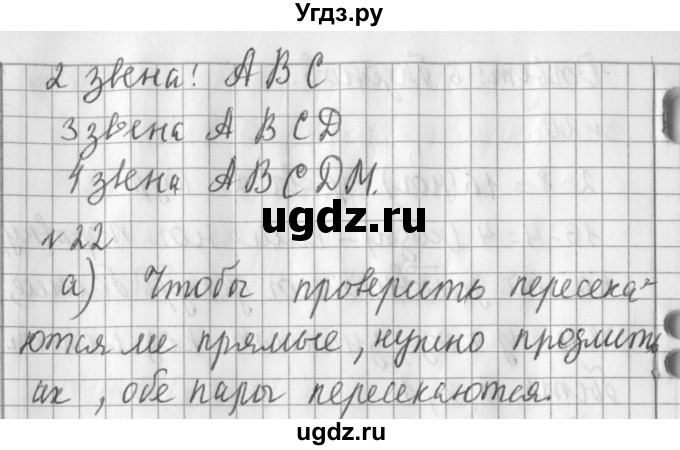 Угдз.ру
2 звена: А В С
3 звена А В С D
4 звена А В С D M.
ugdz.ru
№22
а) Чтобы проверить пересека-
ются ли прямые, нужно продлить
их, обе пары пересекаются.
ugdz.ru